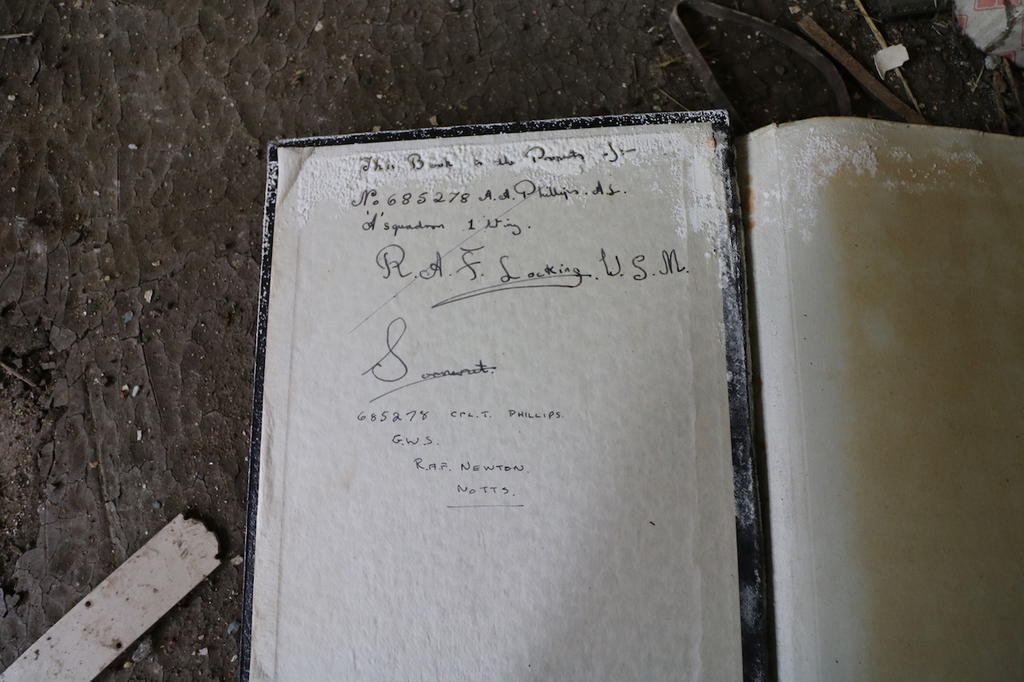 This Book is the Property of:-
No 685278 A.A. Phillips. AA.
'A' squadron 1 Wing.
R.A.F. Locking. W.S.M.
Somerset.
685278 CPL.T. PHILLIPS.
G.W.S.
R.A.F. NEWTON.
NOTTS.